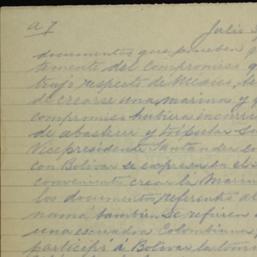 a 7 Julio
documentos que prueben q
temente del compromiso q
trajo respecto de México, de
de crearse una marina y q
compromiso hubiera incurri
de abastecer y tripular su
Vice presidente Santander en
con Bolívar se expresan el
conveniente crear la Marin
los documentos referentes a
namá también. Se refieren
una escuadra Colombiana,
participó á Bolívar la tom